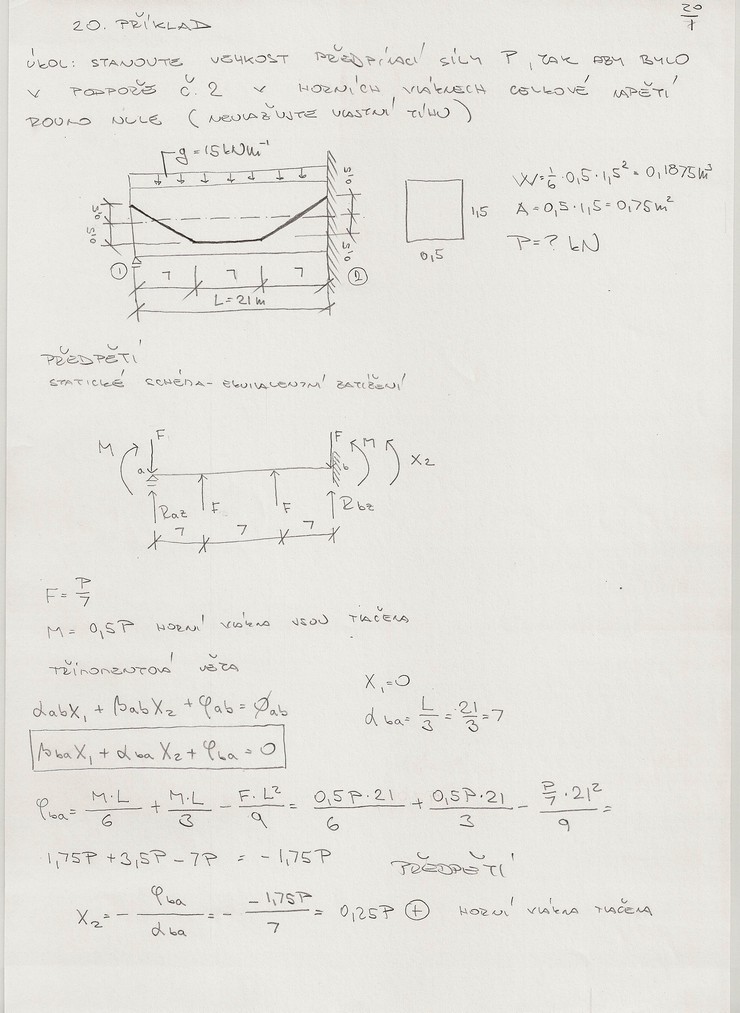 20/7
20. PŘÍKLAD
ÚKOL: STANOVTE VELIKOST PŘEDPÍNACÍ SÍLY P, TAK ABY BYLO
V PODPOŘE Č. 2 V HORNÍCH VLÁKNECH CELKOVÉ NAPĚTÍ
ROVNO NULE (NEUVAŽUJTE VLASTNÍ TÍHU)
g = 15 kNm⁻¹
0,5 0,5 0,5 0,5
1 7 7 7 2
L = 21 m
1,5
0,5
W = 1/6 · 0,5 · 1,5² = 0,1875 m³
A = 0,5 · 1,5 = 0,75 m²
P = ? kN
PŘEDPĚTÍ
STATICKÉ SCHÉMA - EKVIVALENTNÍ ZATÍŽENÍ
M F F M X2
a b
Raz F F Rbz
7 7 7
F = P/7
M = 0,5P HORNÍ VLÁKNA JSOU TLAČENA
TŘÍMOMENTOVÁ VĚTA
X₁ = 0
αab X₁ + βab X₂ + φab = φab
αba = L/3 = 21/3 = 7
βba X₁ + αba X₂ + φba = 0
φba = M·L/6 + M·L/3 - F·L²/9 = 0,5P·21/6 + 0,5P·21/3 - P/7·21²/9 =
1,75P + 3,5P - 7P = -1,75P PŘEDPĚTÍ
X₂ = - φba/αba = - -1,75P/7 = 0,25P ⊕ HORNÍ VLÁKNA TLAČENA